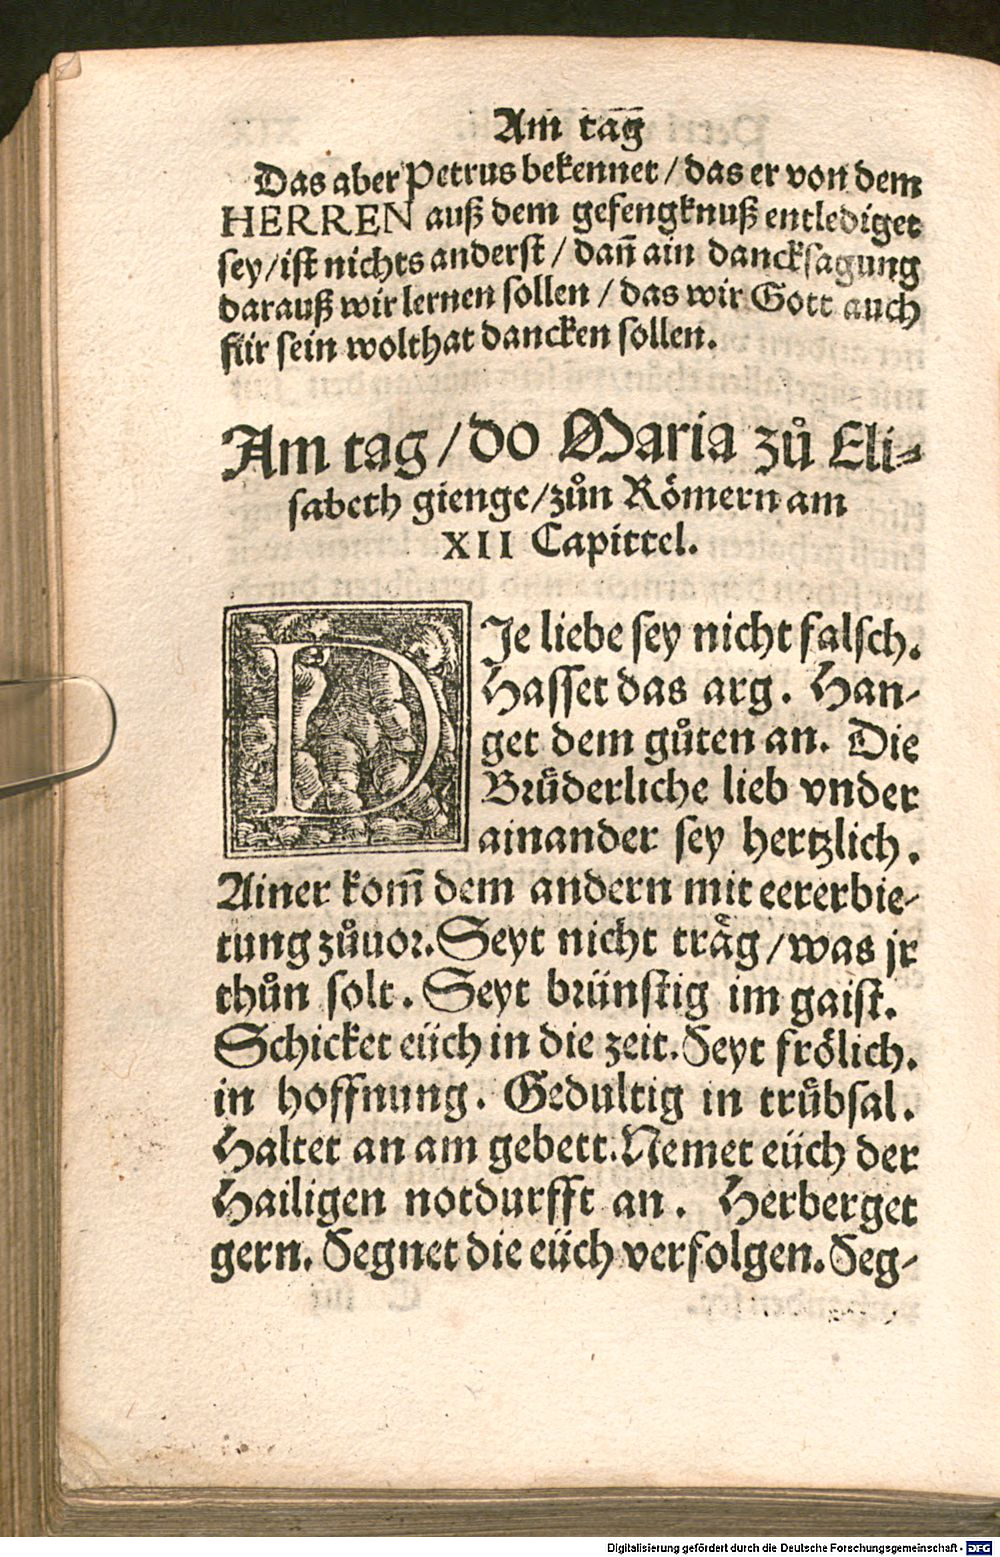 Am tag̅
Das aber Petrus bekennet / das er von dem
HERREN auß dem gefengknuß entlediget
sey / ist nichts anderst / dan̄ ain dancksagung
darauß wir lernen sollen / das wir Gott auch
für sein wolthat dancken sollen.
Am tag / do Maria zů Eli⸗
sabeth gienge / zůn Römern am
XII Capittel.
DIe liebe sey nicht falsch.
Hasset das arg. Han⸗
get dem gůten an. Die
Brůderliche lieb vnder
ainander sey hertzlich.
Ainer kom̄ dem andern mit eererbie⸗
tung zůuor. Seyt nicht träg / was jr
thůn solt. Seyt brünstig im gaist.
Schicket eüch in die zeit. Seyt frölich.
in hoffnung. Gedultig in trůbsal.
Haltet an am gebett. Nemet eüch der
Hailigen notdurfft an. Herberget
gern. Segnet die eüch verfolgen. Seg⸗
Digitalisierung gefördert durch die Deutsche Forschungsgemeinschaft - DFG